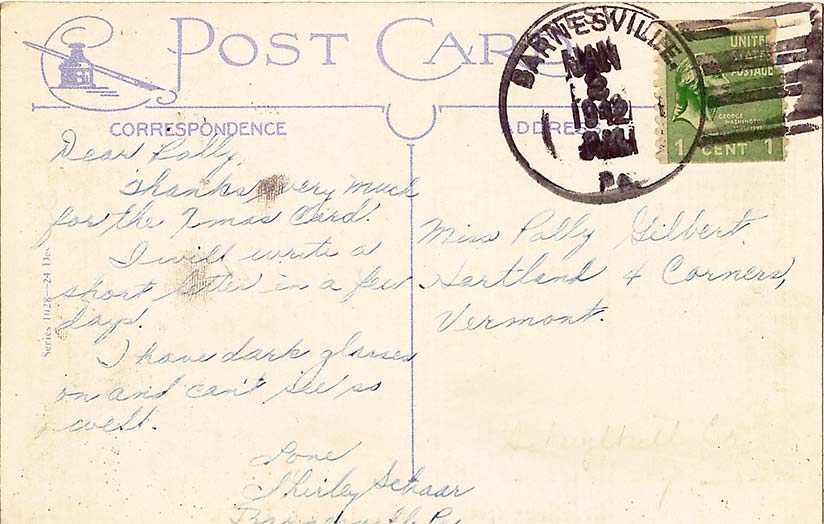 POST CARD
CORRESPONDENCE
ADDRESS
BARNESVILLE
JAN
2
1942
PA.
UNITED
STATES
POSTAGE
GEORGE
WASHINGTON
1 CENT 1
Dear Polly,
Thanks very much
for the Xmas Card.
I will write a
short letter in a few
days.
I have dark glasses
on and can't see so
well.
Love
Shirley Schaar
Barnesville Pa
Miss Polly Gilbert
Hartland 4 Corners,
Vermont.
Series 1028—24 De